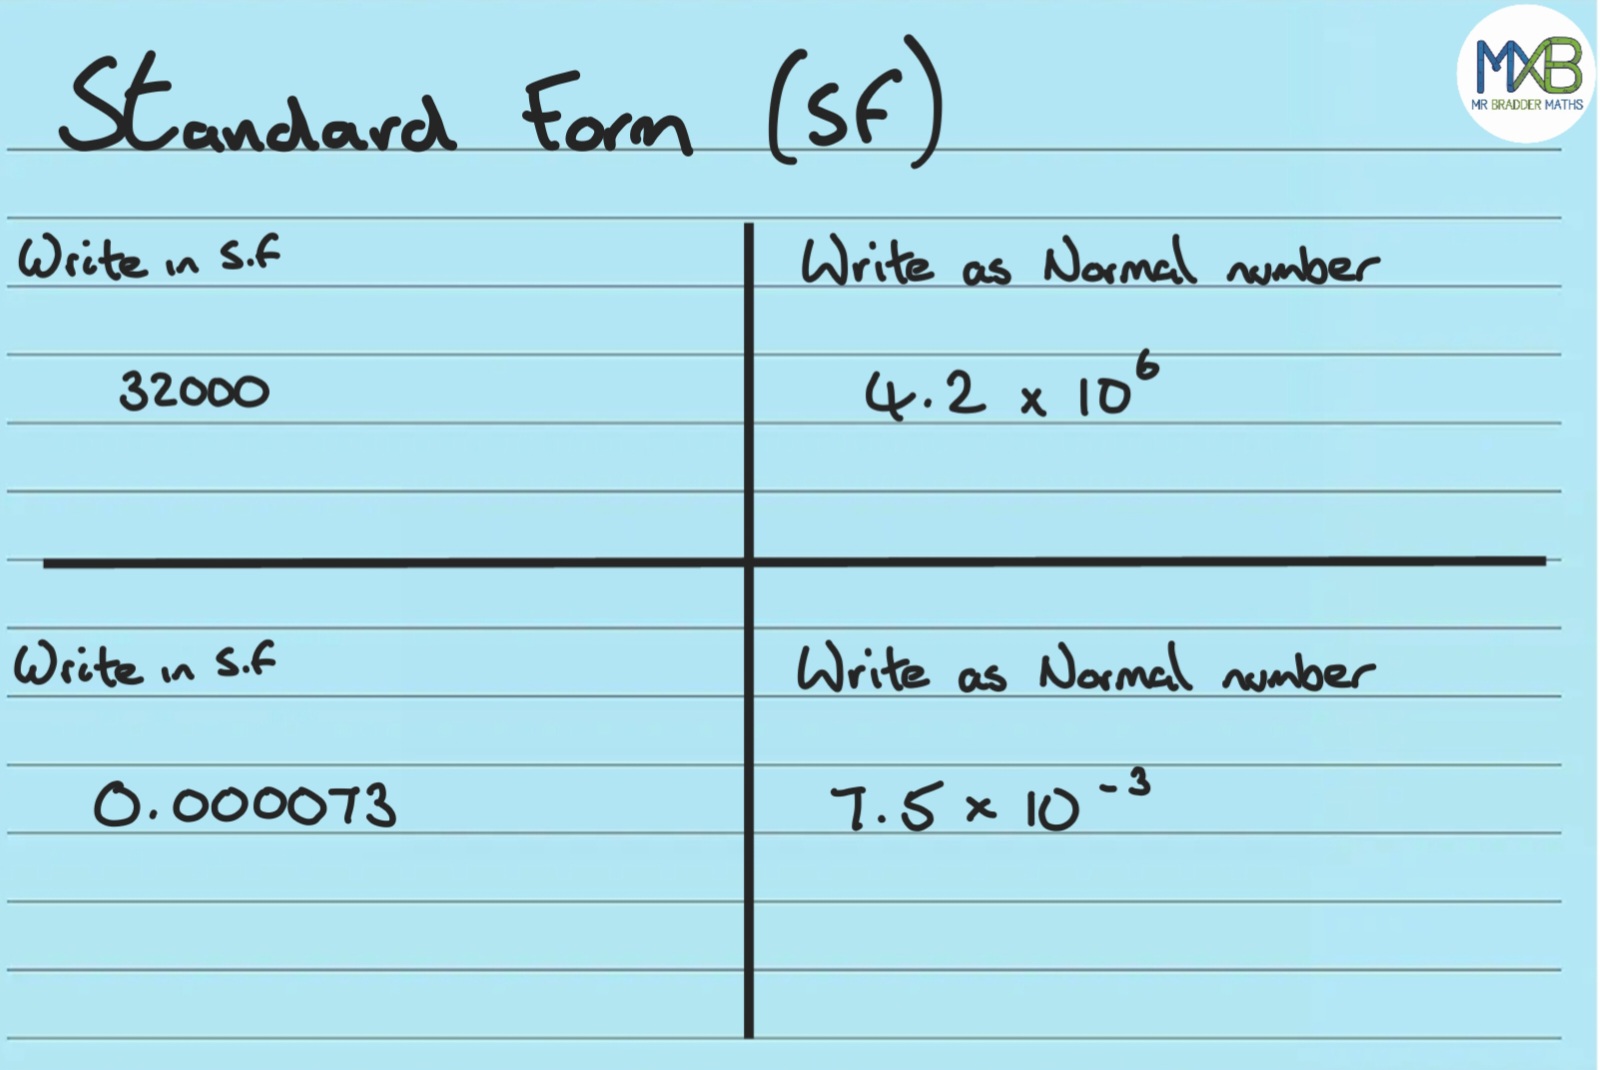 Standard Form (SF)
MXB
MR BRADDER MATHS
Write in S.F
32000
Write as Normal number
4.2 x 10⁶
Write in S.F
0.000073
Write as Normal number
7.5 x 10⁻³